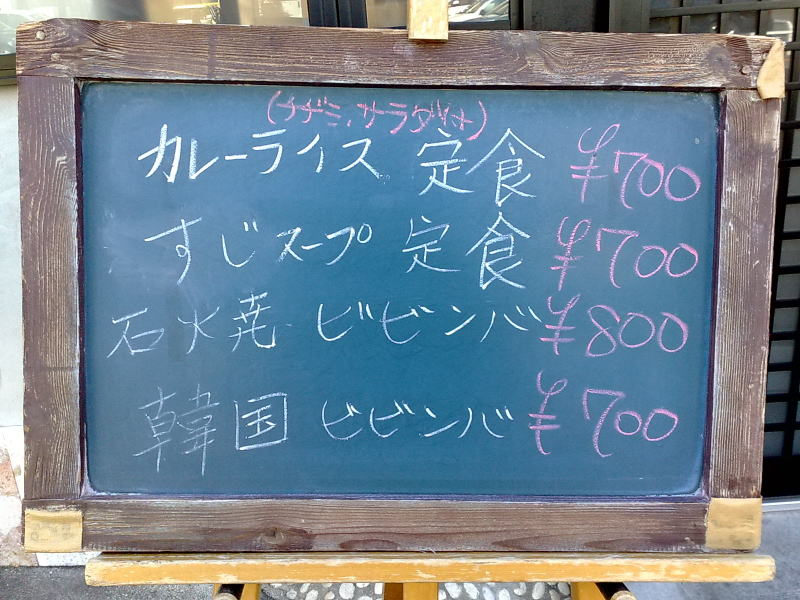 (チヂミ、サラダ付)
カレーライス 定食 ¥700
すじスープ 定食 ¥700
石火焼 ビビンバ ¥800
韓国 ビビンバ ¥700